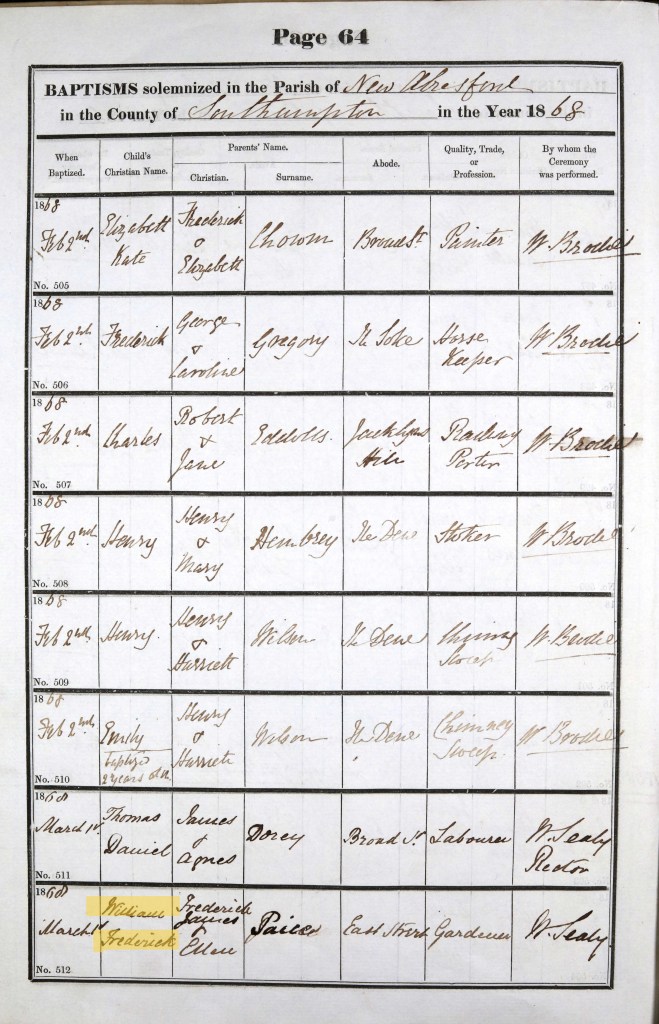 Page 64
BAPTISMS solemnized in the Parish of New Alresford
in the County of Southampton in the Year 1868
When Baptized.
Child's Christian Name.
Parents' Name.
Christian.
Surname.
Abode.
Quality, Trade, or Profession.
By whom the Ceremony was performed.
1868
Feb 2nd
Elizabeth
Kate
Frederick
&
Elizabeth
Broad St
Painter
W. Brodie
No. 505
1868
Feb 2nd
Frederick
George
&
Caroline
Gregory
The Soke
Horse
Keeper
W Brodie
No. 506
1868
Feb 2nd
Charles
Robert
&
Jane
Eddolls
Jacklyns
Hill
Railway
Porter
W. Brodie
No. 507
1868
Feb 2nd
Henry
Henry
&
Mary
Hembrey
The Dene
Stoker
W Brodie
No. 508
1868
Feb 2nd
Henry.
Henry
&
Harriett
Wilson
The Dene
Chimney
Sweep
W. Brodie
No. 509
1868
Feb 2nd
Emily
baptized
2 years old
Henry
&
Harriett
Wilson
The Dene
Chimney
Sweep.
W Brodie
No. 510
1868
March 1st
Thomas
Daniel
James
&
Agnes
Dorey
Broad St
Labourer
W. Sealy
Rector
No. 511
1868
March 1st
William
Frederick
Frederick
James
&
Ellen
Paice
East Street
Gardener
W. Sealy.
No. 512